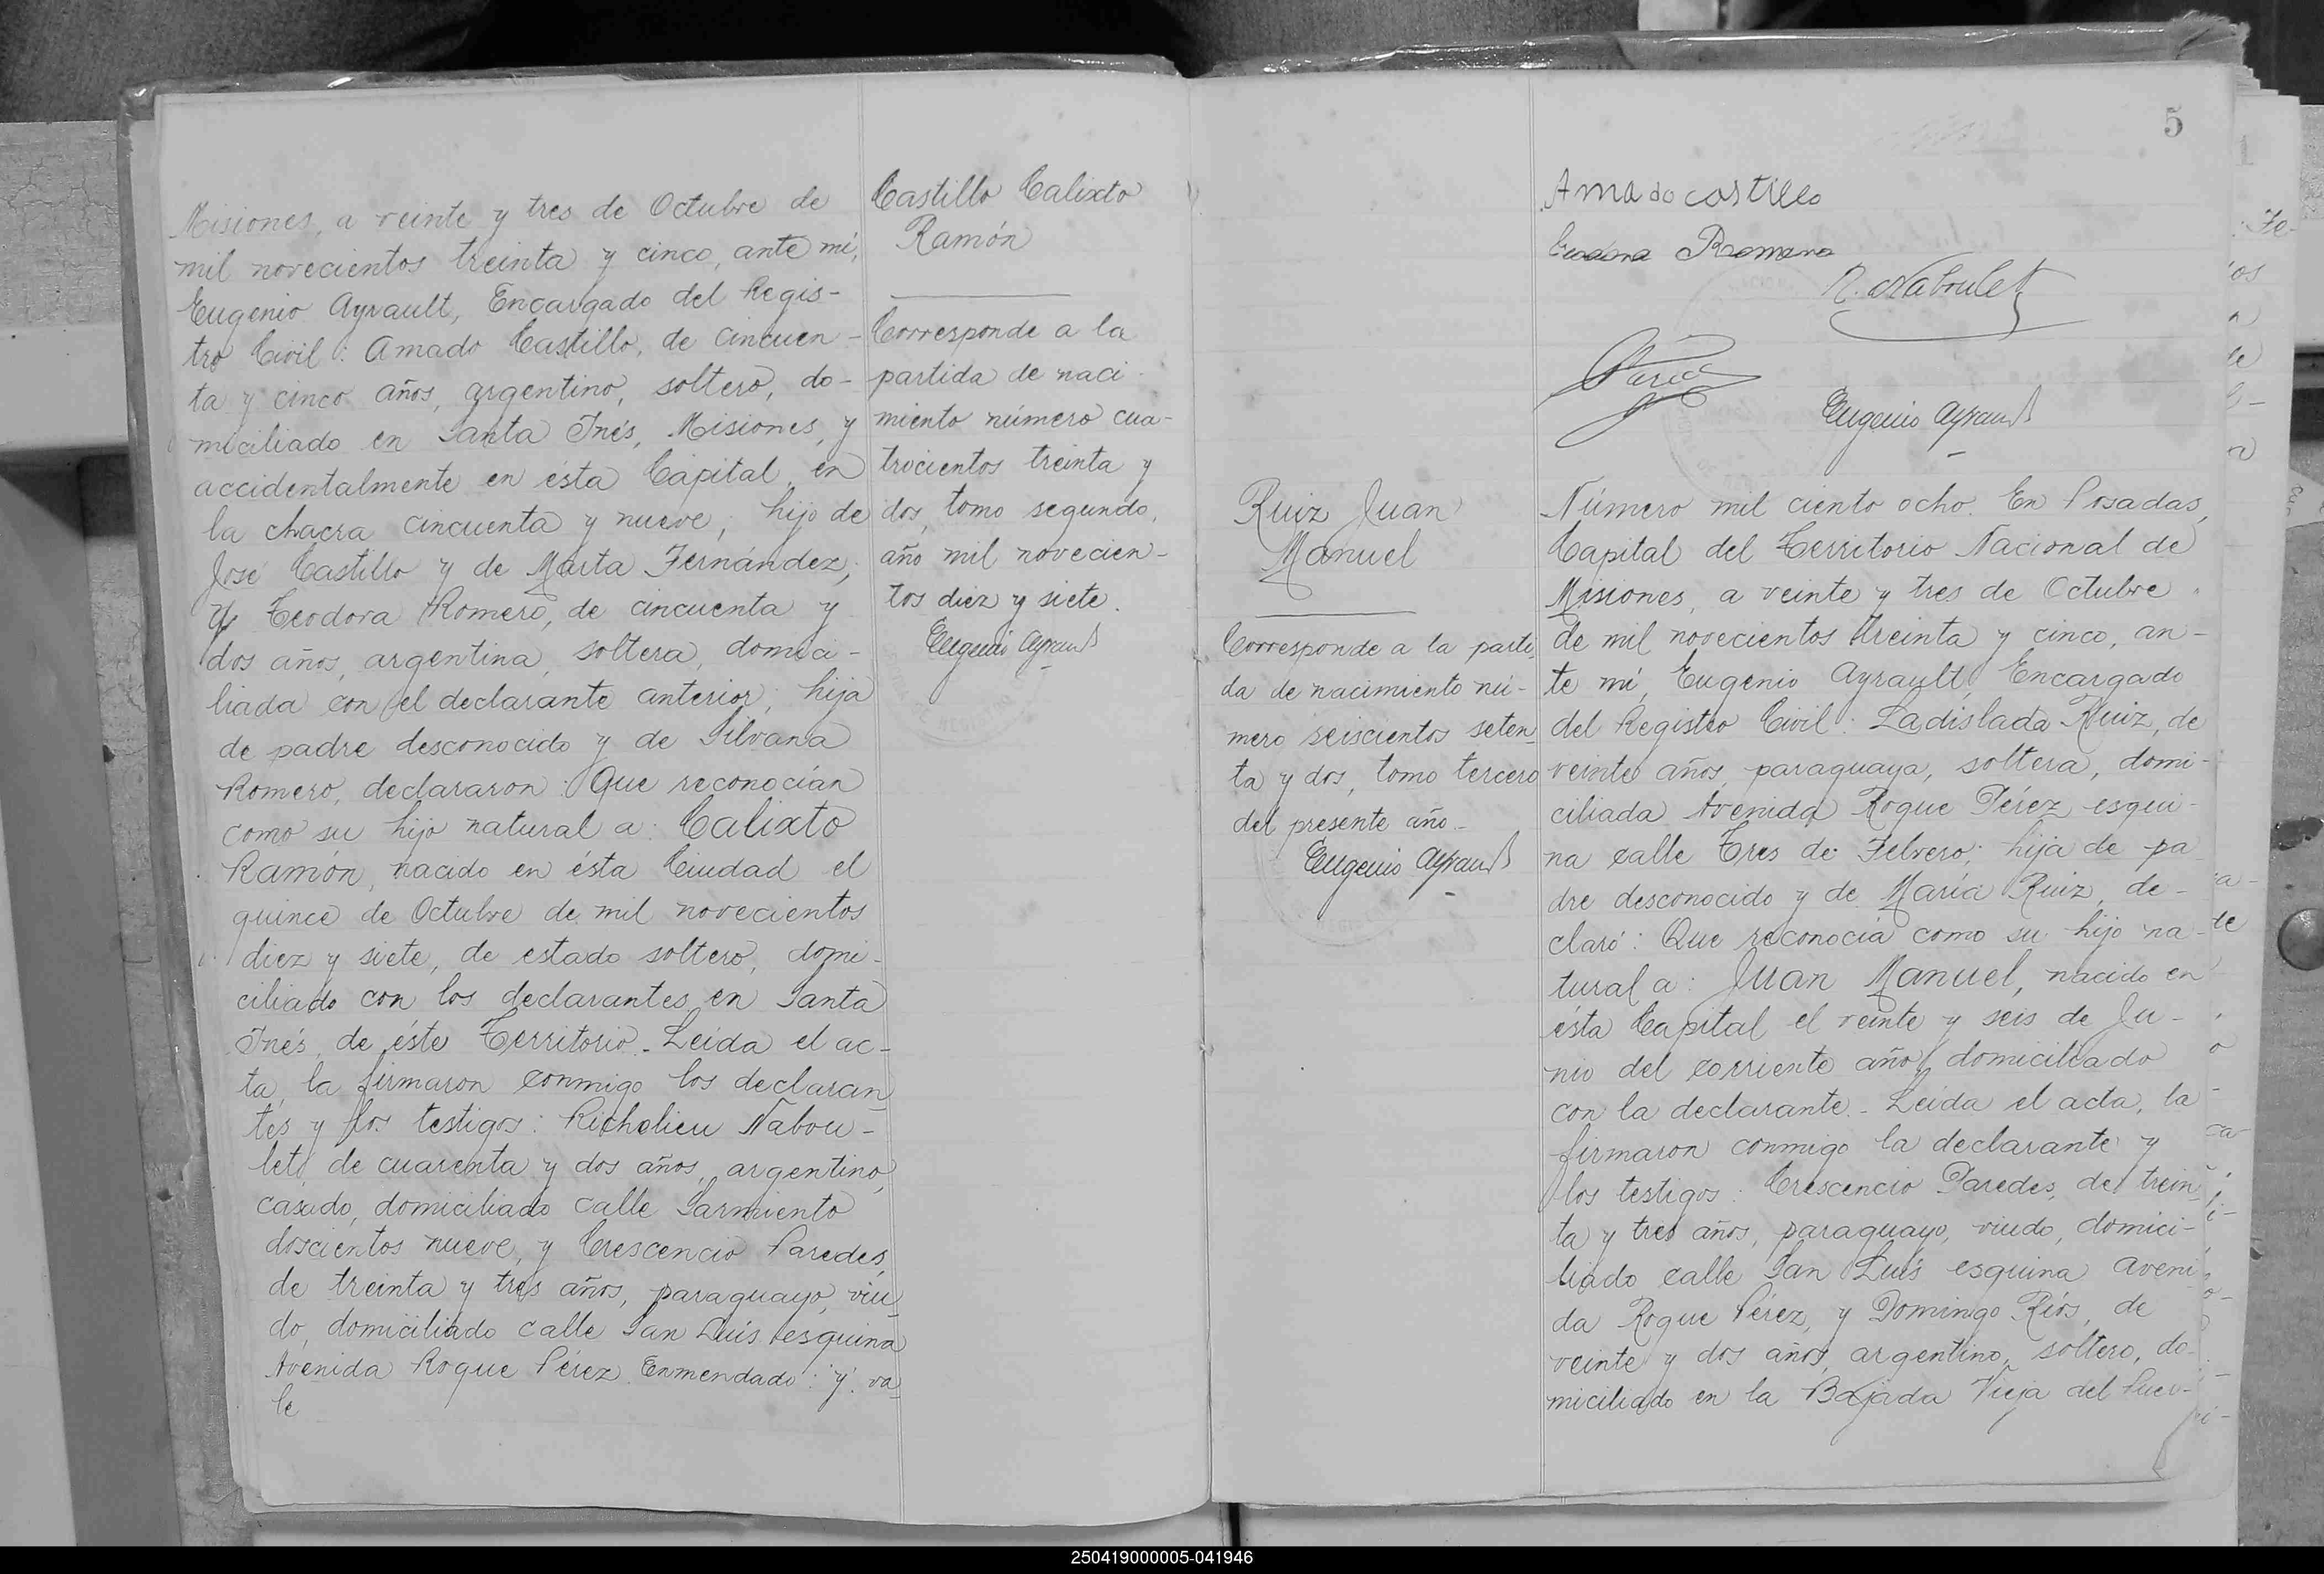 Misiones, a veinte y tres de Octubre de
mil novecientos treinta y cinco, ante mí,
Eugenio Ayrault, Encargado del Regis-
tro Civil: Amado Castillo, de cincuen-
ta y cinco años, argentino, soltero, do-
miciliado en Santa Inés, Misiones, y
accidentalmente en ésta Capital en
la chacra cincuenta y nueve; hijo de
José Castillo y de Marta Fernández;
y Teodora Romero, de cincuenta y
dos años, argentina, soltera, domici-
liada con el declarante anterior; hija
de padre desconocido y de Silvana
Romero, declararon: Que reconocían
como su hijo natural a: Calixto
Ramón, nacido en ésta Ciudad el
quince de Octubre de mil novecientos
diez y siete, de estado soltero, domi-
ciliado con los declarantes en Santa
Inés, de éste Territorio.- Leída el ac-
ta, la firmaron conmigo los declaran-
tes y los testigos: Richelieu Nabou-
let, de cuarenta y dos años, argentino,
casado, domiciliado calle Sarmiento
doscientos nueve, y Crescencio Paredes,
de treinta y tres años, paraguayo, viu-
do, domiciliado calle San Luís esquina
Avenida Roque Pérez. Enmendado: y. va-
le
Castillo Calixto
Ramón
Corresponde a la
partida de naci-
miento número cua-
trocientos treinta y
dos, tomo segundo,
año mil novecien-
tos diez y siete.
Eugenio Ayrault
5
Amado castillo
Romero
R. Naboulet
Eugenio Ayrault
Ruiz Juan
Manuel
Corresponde a la parti-
da de nacimiento nú-
mero seiscientos seten-
ta y dos, tomo tercero
del presente año.-
Eugenio Ayrault
Número mil ciento ocho. En Posadas,
Capital del Territorio Nacional de
Misiones, a veinte y tres de Octubre
de mil novecientos treinta y cinco, an-
te mí, Eugenio Ayrault, Encargado
del Registro Civil: Ladislada Ruiz, de
veinte años, paraguaya, soltera, domi-
ciliada Avenida Roque Pérez esqui-
na calle Tres de Febrero; hija de pa
dre desconocido y de María Ruiz, de-
claró: Que reconocía como su hijo na-
tural a: Juan Manuel, nacido en
ésta Capital el veinte y seis de Ju-
nio del corriente año, domiciliado
con la declarante.- Leída el acta, la
firmaron conmigo la declarante y
los testigos: Crescencio Paredes, de trein-
ta y tres años, paraguayo, viudo, domici-
liado calle San Luís esquina Aveni-
da Roque Pérez, y Domingo Ríos, de
veinte y dos años, argentino, soltero, do-
miciliado en la Bajada Vieja del Puer-
250419000005-041946